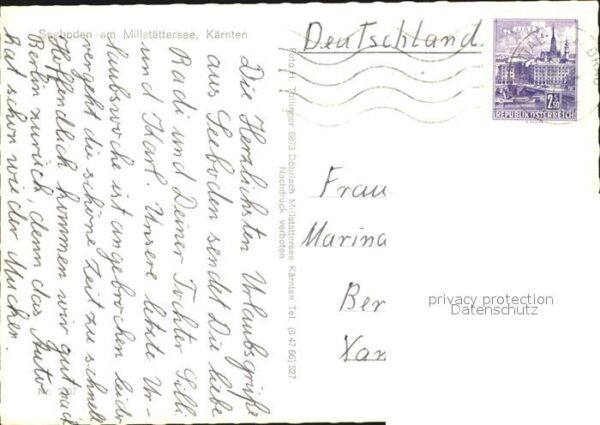 Seeboden am Millstättersee, Kärnten
Die Herzlichsten Urlaubsgrüße
aus Seeboden sendet Dir liebe
Radi und Deiner Tochter Silli
und Karl. Unsere letzte Ur-
laubswoche ist angebrochen leider
vergeht die schöne Zeit zu schnell
Hoffendlich kommen wir gut nach
Berlin zurück, denn das Auto
hat schon wieder Mucken.
Foto H. Tollinger 9873 Döbriach Millstättersee Kärnten Tel. (0 47 66) 527
Nachdruck verboten
Deutschland
WIEN
2.50
REPUBLIK ÖSTERREICH
Frau
Marina
Ber
Xan
privacy protection
Datenschutz